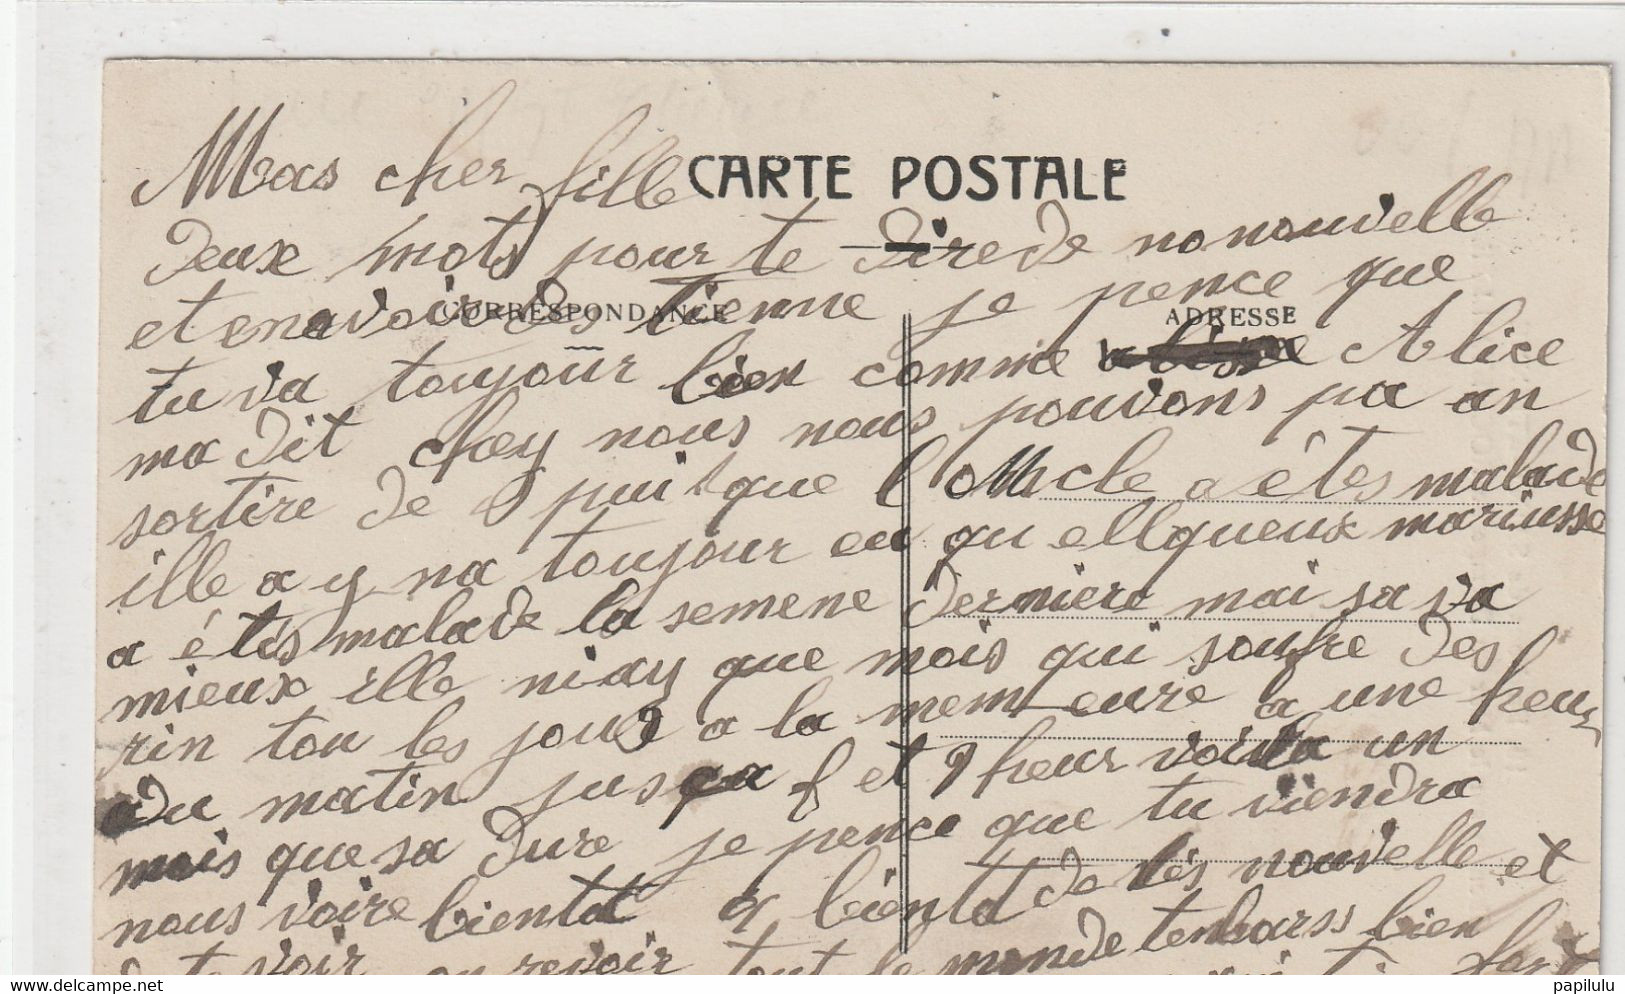 Mas cher fille
CARTE POSTALE
deux mots pour te dire de no nouvelle
CORRESPONDANCE
ADRESSE
et enavoir des tienne je pence que
tu va toujour bien comme Alice
ma dit chey nous nous pouvons pa an
sortire de puisque l'oncle a étes malade
ille a y na toujour eu qu ellqueux mariusse
a étés malade la semene derniere mai sa va
mieux ille niay que mois qui soufre des
rin tou les jour a la mem eure a une heur
du matin jusqa et 9 heur voila un
mois que sa dure je pence que tu viendra
nous voire bientot a bientot de tes nouvelle et
de te voir au revoir tout le monde tenbarss bien
papilulu